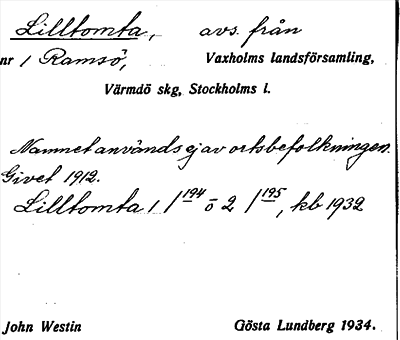 Lilltomta, avs. från
nr 1 Ramsö, Vaxholms landsförsamling,
Värmdö skg, Stockholms l.
Namnet används ej av ortsbefolkningen.
Givet 1912.
Lilltomta 1/194 o 2/195, kb 1932
John Westin Gösta Lundberg 1934.